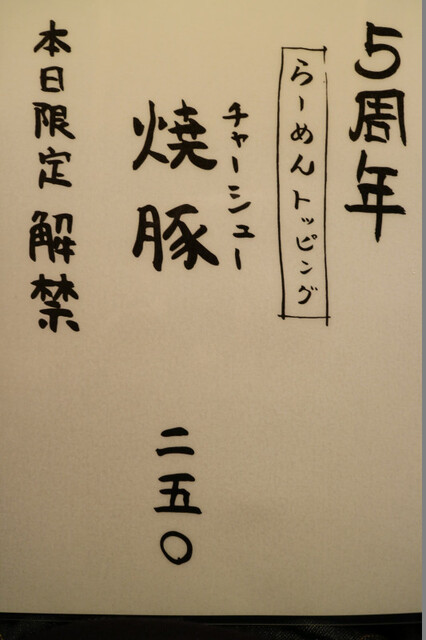 5周年
らーめんトッピング
チャーシュー
焼豚 二五〇
本日限定 解禁